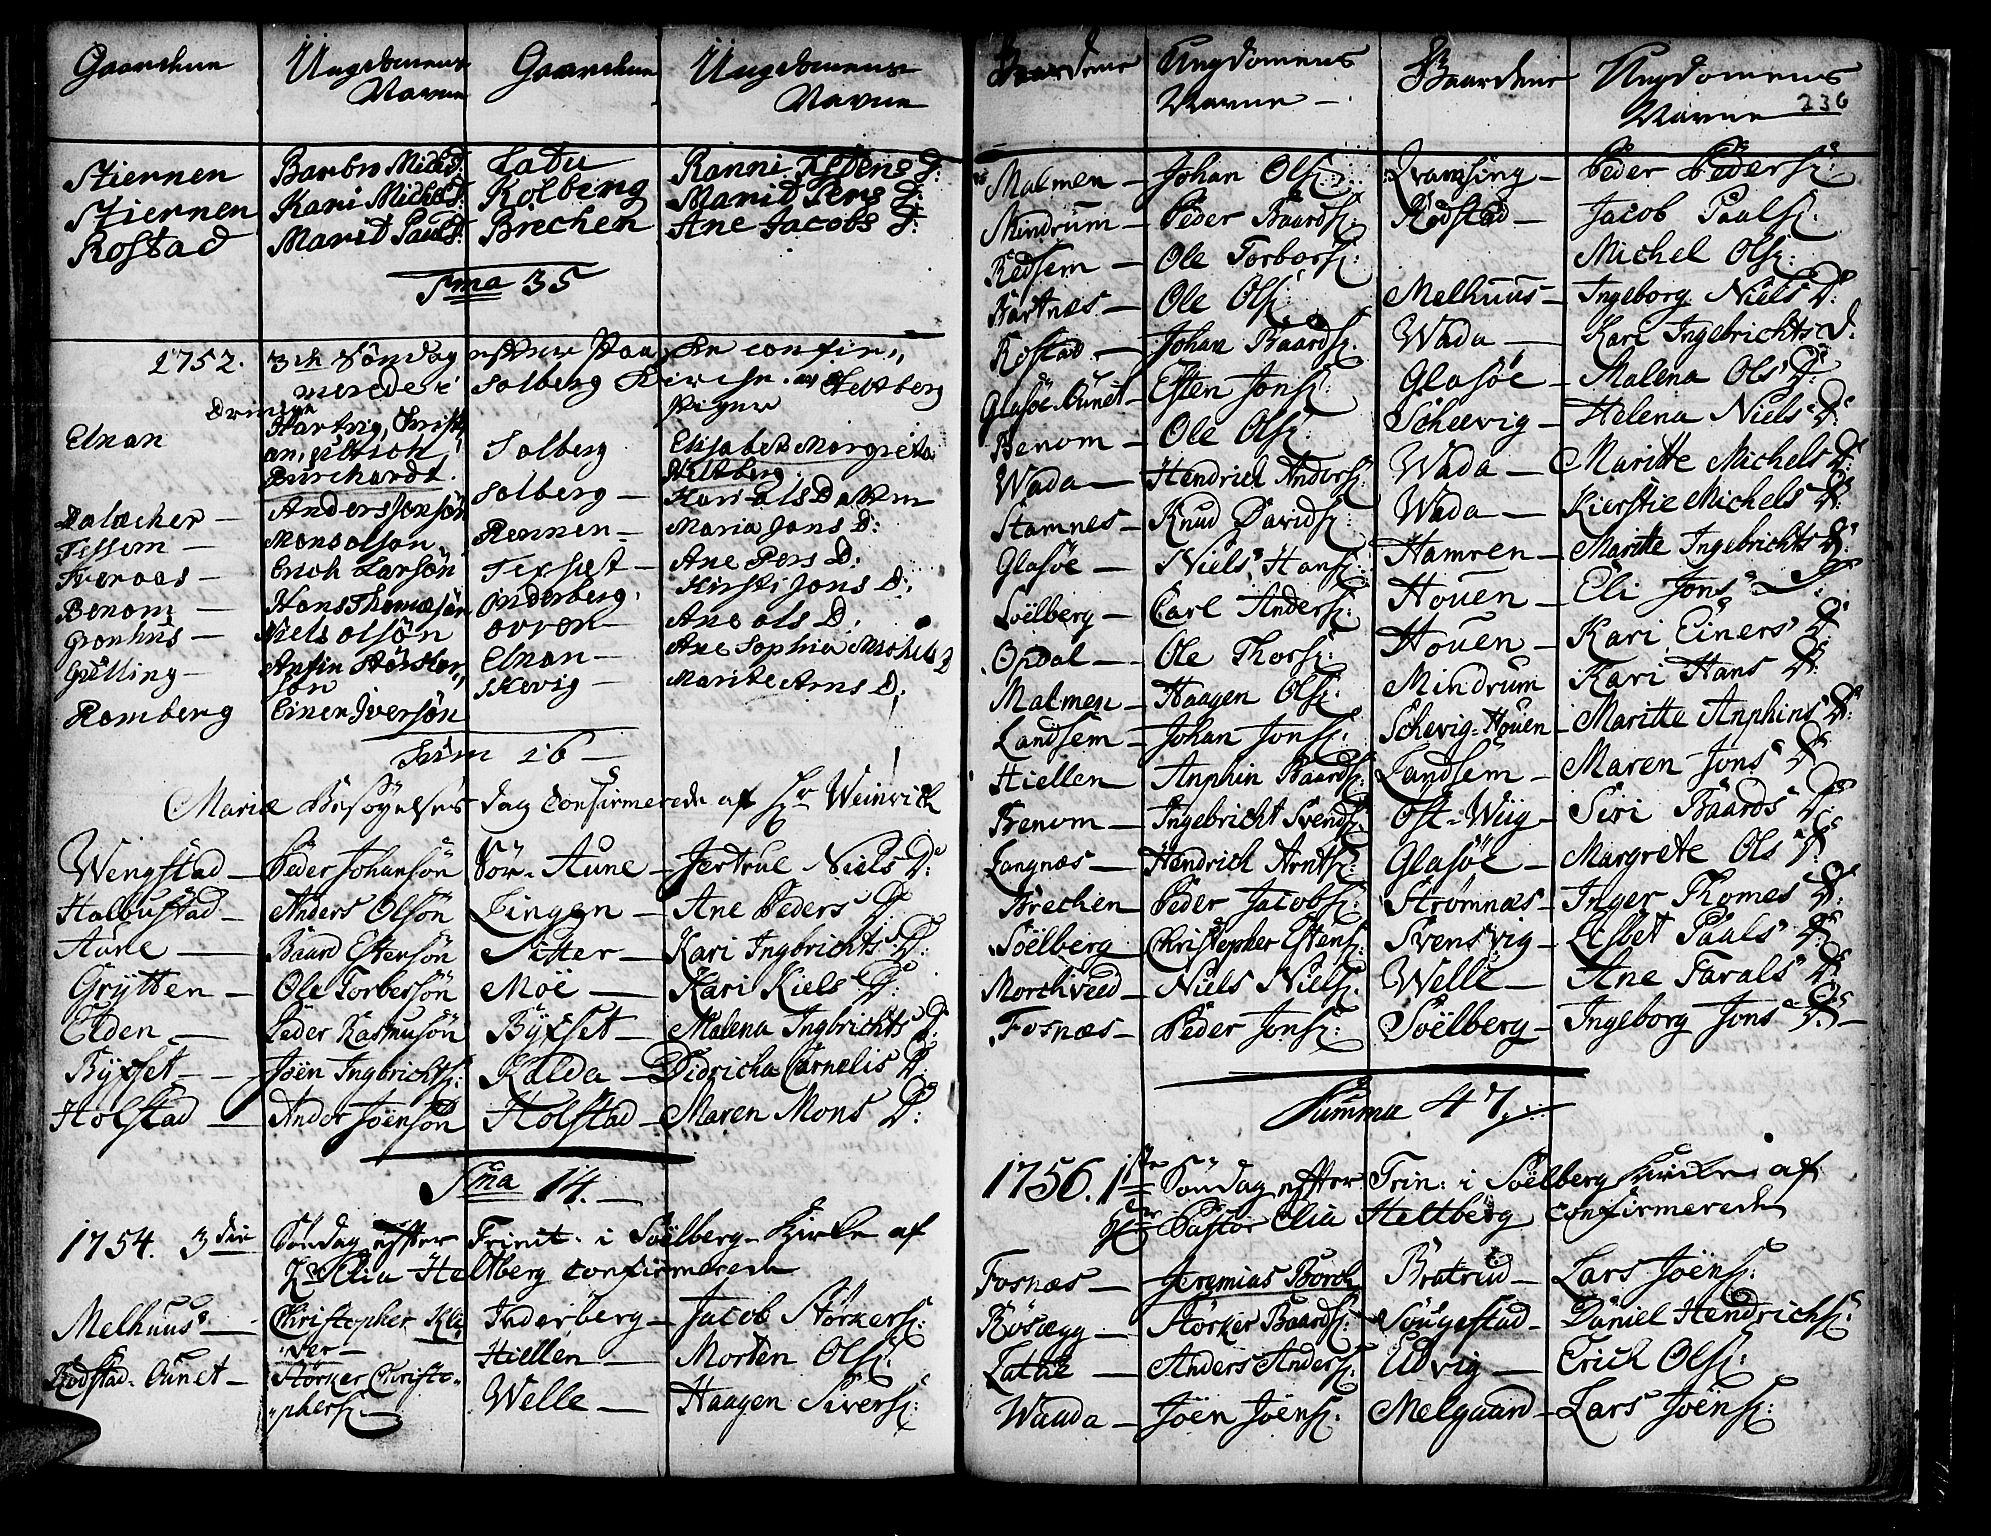 Gaardene Ungdomens Gaardene Ungdomens
Navne Navne
Stiernen Barbro Michels D: Ladu Ranni Estens D:
Stiernen Kari Michels D: Kolberg Marit Pers D:
Rostad Marit Pauls D: Brechen Ane Jacobs D:
Sma 35
1752. 3de Söndag efter Paaske confir„
merede i Salberg Kirche. av Heltberg
Drenge Piger
Elnan Hartvig, Christi„ Salberg Elisabeth Margreta
an, Burchardt. Heltberg.
Dalacher — Anders Jonsön Salberg — Kari Ols Datter
Tessem — Mons olson Rennen — Maria Jons D:
Tveraas — Erich Larsön Fixset — Ane Pers D:
Benom — Hans Thomæsön Onderberg. Kirsti Jons D:
Gronhus — Niels olsön ovren — Ane ols D:
Gulling — Anfin Størcker„ Elnan — Ane Sophia Michels D
sön Skevig — Marite Arns D:
Romberg Einer Iversön
Sum 16 —
Mariæ Besøgelses dag confirmerede af Hr Weinrich
Wengstad — Peder Johansön Sör-Aune — Jertrue Niels D:
Halbustad — Anders Olsön Lingen — Ane Peders D:
Aune — Baard Estensön Sitter — Kari Ingbrichts D:
Grÿtten — Ole Torbersön Moë — Kari Kiels D:
Elden — Peder Rasmusön Bÿxset — Malena Ingbrichts D:
Bÿxset — Joën Ingbrichts: Kalda — Didricha Cornelis D:
Holstad — Ander Joënsön Holstad — Maren Mons D:
Sma 14. —
1754. 3die Söndag effter Trinit: i Soëlberg Kirke af
Hr Elia Heltberg confirmerede
Melhuus — Christopher Klü„ Inderberg — Jacob Störkers:
„ver — Hiellen — Morten Ols:
Rodstad-Aunet — Störker Christo„ Welle — Haagen Sivers:
„phers: —
Gaardene Ungdomens Gaardene Ungdomens
Navne — Navne 236
Malmen — Johan Ols: Qvamsing — Peder Peders:
Mindrum — Peder Baards: Rodstad — Jacob Paals:
Redsem — Ole Torbers: Michel Ols:
Hartnæs — Ole Ols: Melhuus — Ingeborg Niels D:
Rostad — Johan Baards: Wada — Kari Ingebrichts D:
Glasöe Aunet — Esten Jons: Glasöe — Malena Ols D:
Benom — Ole Ols: Scheevig — Helena Niels D:
Wada — Hendrich Anders: Wada — Maritte Michels D:
Stamnes — Knud Davids: Wada — Kierstie Michels D:
Glasöe — Niels Hans: Hamren — Maritte Ingebrichts D:
Soëlberg — Carl Anders: Houen — Eli Jons D:
Opdal — Ole Thors: Houen — Kari Einers D:
Malmen — Haagen Ols: Mindrum Kari Hans D:
Landsem — Johan Jons: Schevig-Houen — Maritte Anphins D:
Hiellen — Anphin Baards: Landsem — Maren Jons D:
Benom — Ingebricht Svends: Öst-Wiig — Siri Baards D:
Langnæs — Hendrich Arnts: Glasöe — Margrete Ols D:
Brechen — Peder Jacobs: Strömnæs — Inger Thomes D:
Soëlberg Christopher Estens: Svensvig — Lisbet Pauls D:
Morchveed — Niels Niels: Welle — Ane Tarals D:
Fosnæs — Peder Jons: Soëlberg — Ingeborg Jons D: —
Summa 47.
1756. 1ste Söndag effter Trin: i Soëlberg Kirke af
Hr Pastor Elia Heltberg confirmerede
Fosnæs — Jeremias Borch Bratrud — Lars Joëns:
Rösægg — Störker Baards: Sougestad — Daniel Hendrichs:
Lathe — Anders Anders: Udvig — Erich Ols:
Waada — Joën Joëns: Melgaard — Lars Joëns: